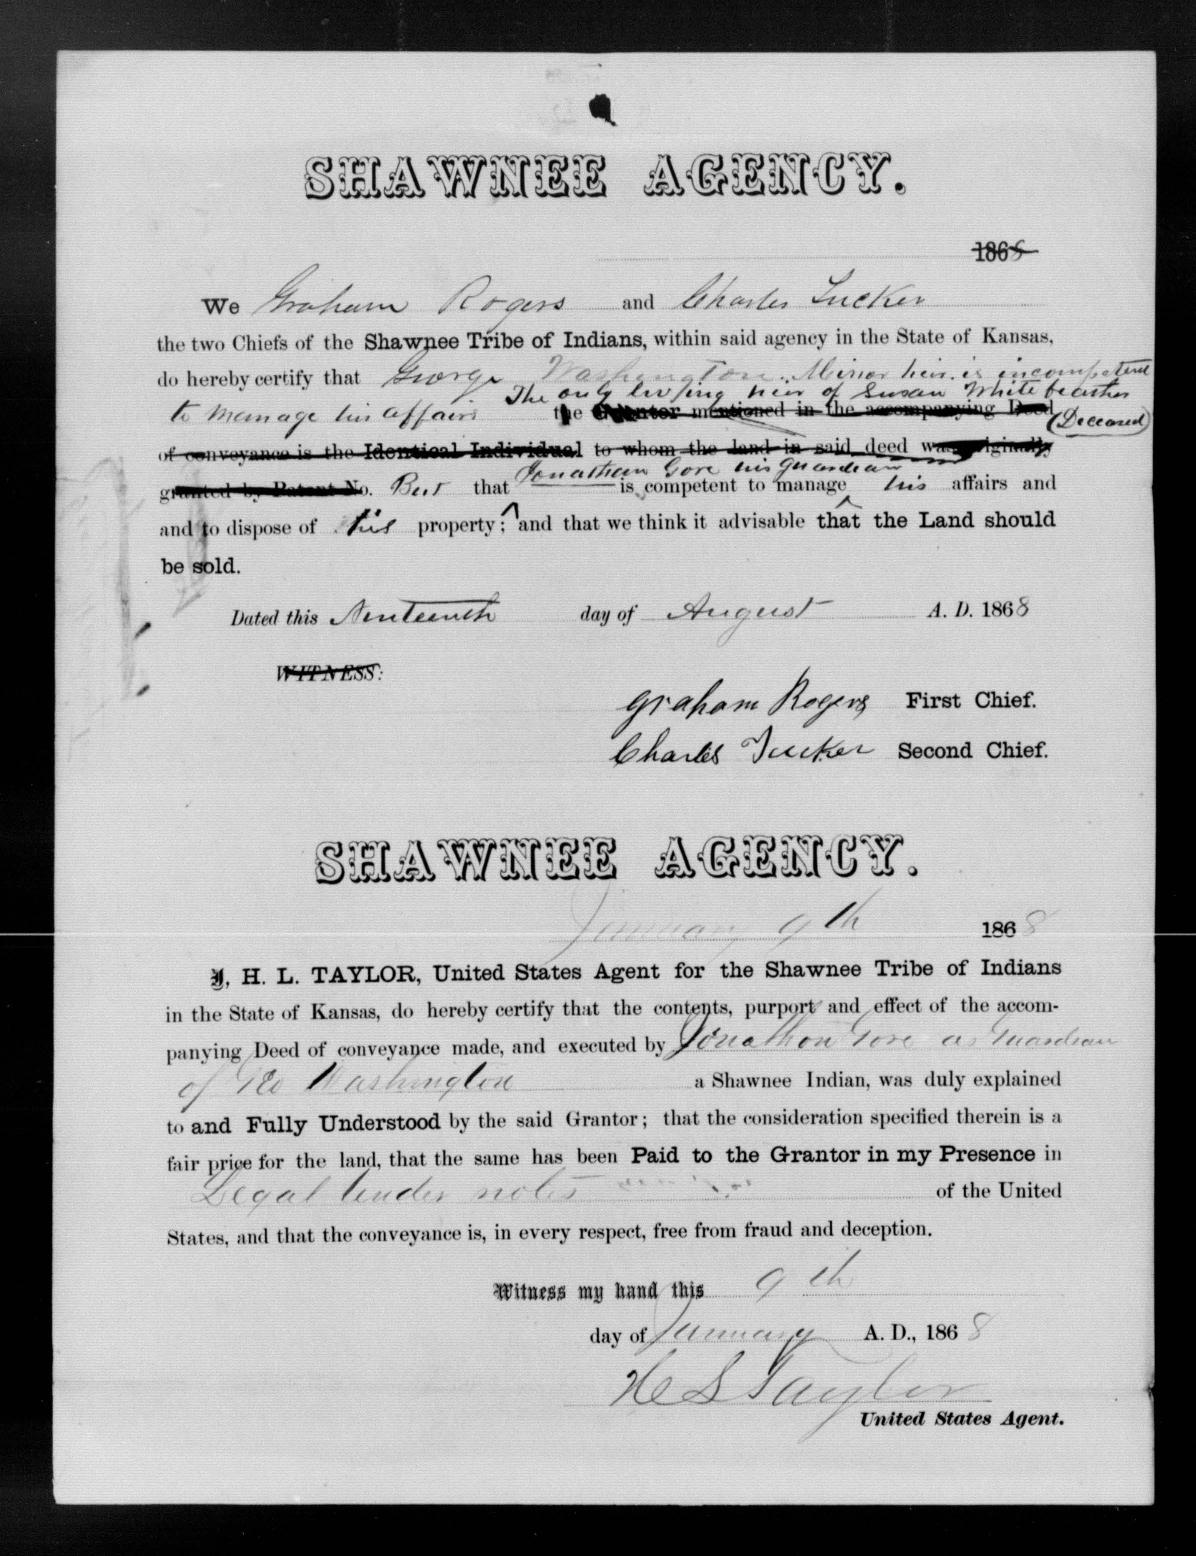 SHAWNEE AGENCY.
1868
We Graham Rogers and Charles Tucker
the two Chiefs of the Shawnee Tribe of Indians, within said agency in the State of Kansas,
do hereby certify that George Washington Minor heir is incompetent
The only living heir of Susan Whitefeather
to manage his affairs the Grantor mentioned in the accompanying Deed (Deceased)
of conveyance is the Identical Individual to whom the land in said deed was originally
Jonathan Gore his guardian
granted by Patent No. But that is competent to manage his affairs and
and to dispose of his property; and that we think it advisable that the Land should
be sold.
Dated this Ninteenth day of August A. D. 1868
WITNESS:
Graham Rogers First Chief.
Charles Tucker Second Chief.
SHAWNEE AGENCY.
January 9th 1868
I, H. L. TAYLOR, United States Agent for the Shawnee Tribe of Indians
in the State of Kansas, do hereby certify that the contents, purport and effect of the accom-
panying Deed of conveyance made, and executed by Jonathon Gore as Guardian
of Geo Washington a Shawnee Indian, was duly explained
to and Fully Understood by the said Grantor; that the consideration specified therein is a
fair price for the land, that the same has been Paid to the Grantor in my Presence in
Legal tender notes of the United
States, and that the conveyance is, in every respect, free from fraud and deception.
Witness my hand this 9th
day of January A. D., 1868
H L Taylor
United States Agent.